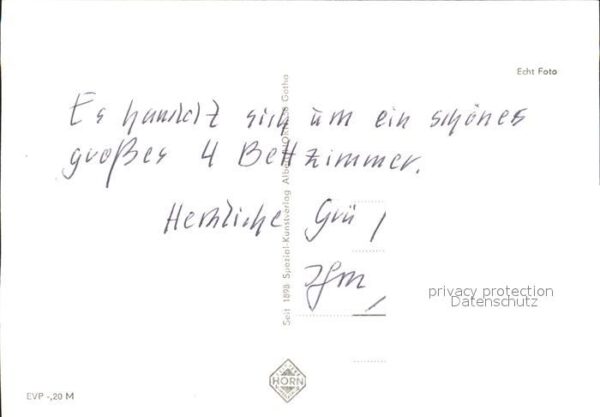 Echt Foto
Es handelt sich um ein schönes
großes 4 Bettzimmer.
Herzliche Grü
Seit 1898 Spezial-Kunstverlag Gotha
privacy protection
Datenschutz
HORN
EVP -,20 M